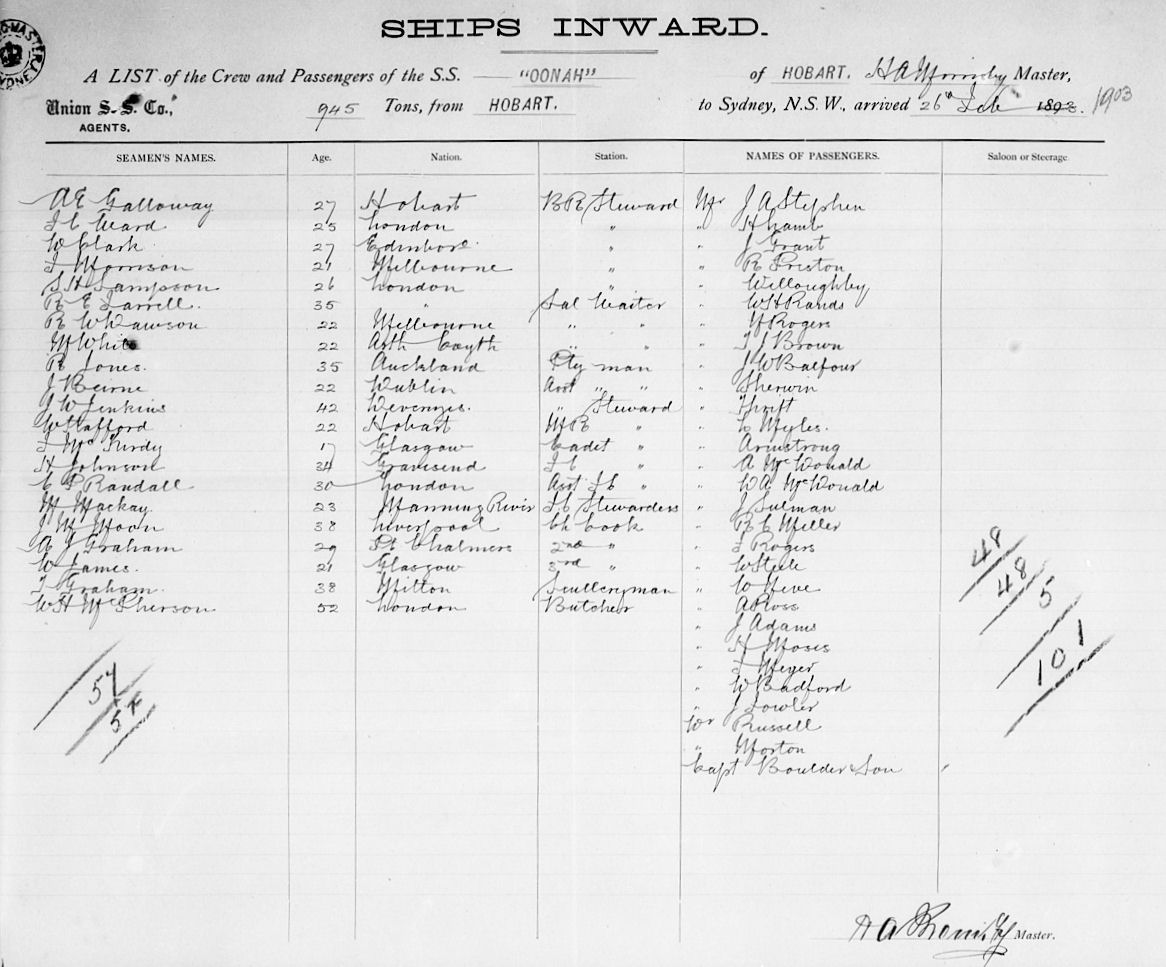 SHIPS INWARD.
A LIST of the Crew and Passengers of the S.S. "OONAH" of HOBART. H A Formby Master,
Union S. S. Co., AGENTS. 945 Tons, from HOBART. to Sydney, N.S.W., arrived 26th Feb 1893. 1903
SEAMEN'S NAMES. Age. Nation. Station. NAMES OF PASSENGERS. Saloon or Steerage
A E Galloway 27 Hobart B R Steward Mr J A Stephen
F C Ward 25 London " " H Lamb
W Clark 27 Edinboro. " " J Grant
F Morrison 21 Melbourne " " R Preston
S H Sampson 26 London " " Willoughby
R E Farrell. 35 " Sal Waiter " W H Rands
R W Dawson 22 Melbourne " " " Rogers
M White 22 " " " J Brown
R Jones. 35 Auckland Pty man " J W Balfour
J Beirne 22 Dublin Asst " " " Sherwin
J W Jenkins 42 " Steward " Thrift
W Stafford 22 Hobart M R " " Myles.
J McPurdy 17 Glasgow Cadet " " Armstrong
H Johnson 34 Gravesend F C " " A McDonald
C P Randall 30 London Asst F C " " W A McDonald
M Mackay 23 Manning River F C Stewardess " J Sulman
J M Moon 38 Liverpool Ch Cook " R C Miller
A J Graham 29 Pt Chalmers 2nd " " F Rogers
W James. 21 Glasgow 3rd " " W Steele
T Graham. 38 Milton Sculleryman " W
W H McPherson 52 London Butcher " A Ross
" J Adams
" H Moses
" F Meyer
" W Badford
" J Fowler
Dr Russell
" Morton
Capt Boulder & Son
48
48
5
101
54
54
H A Formby Master.